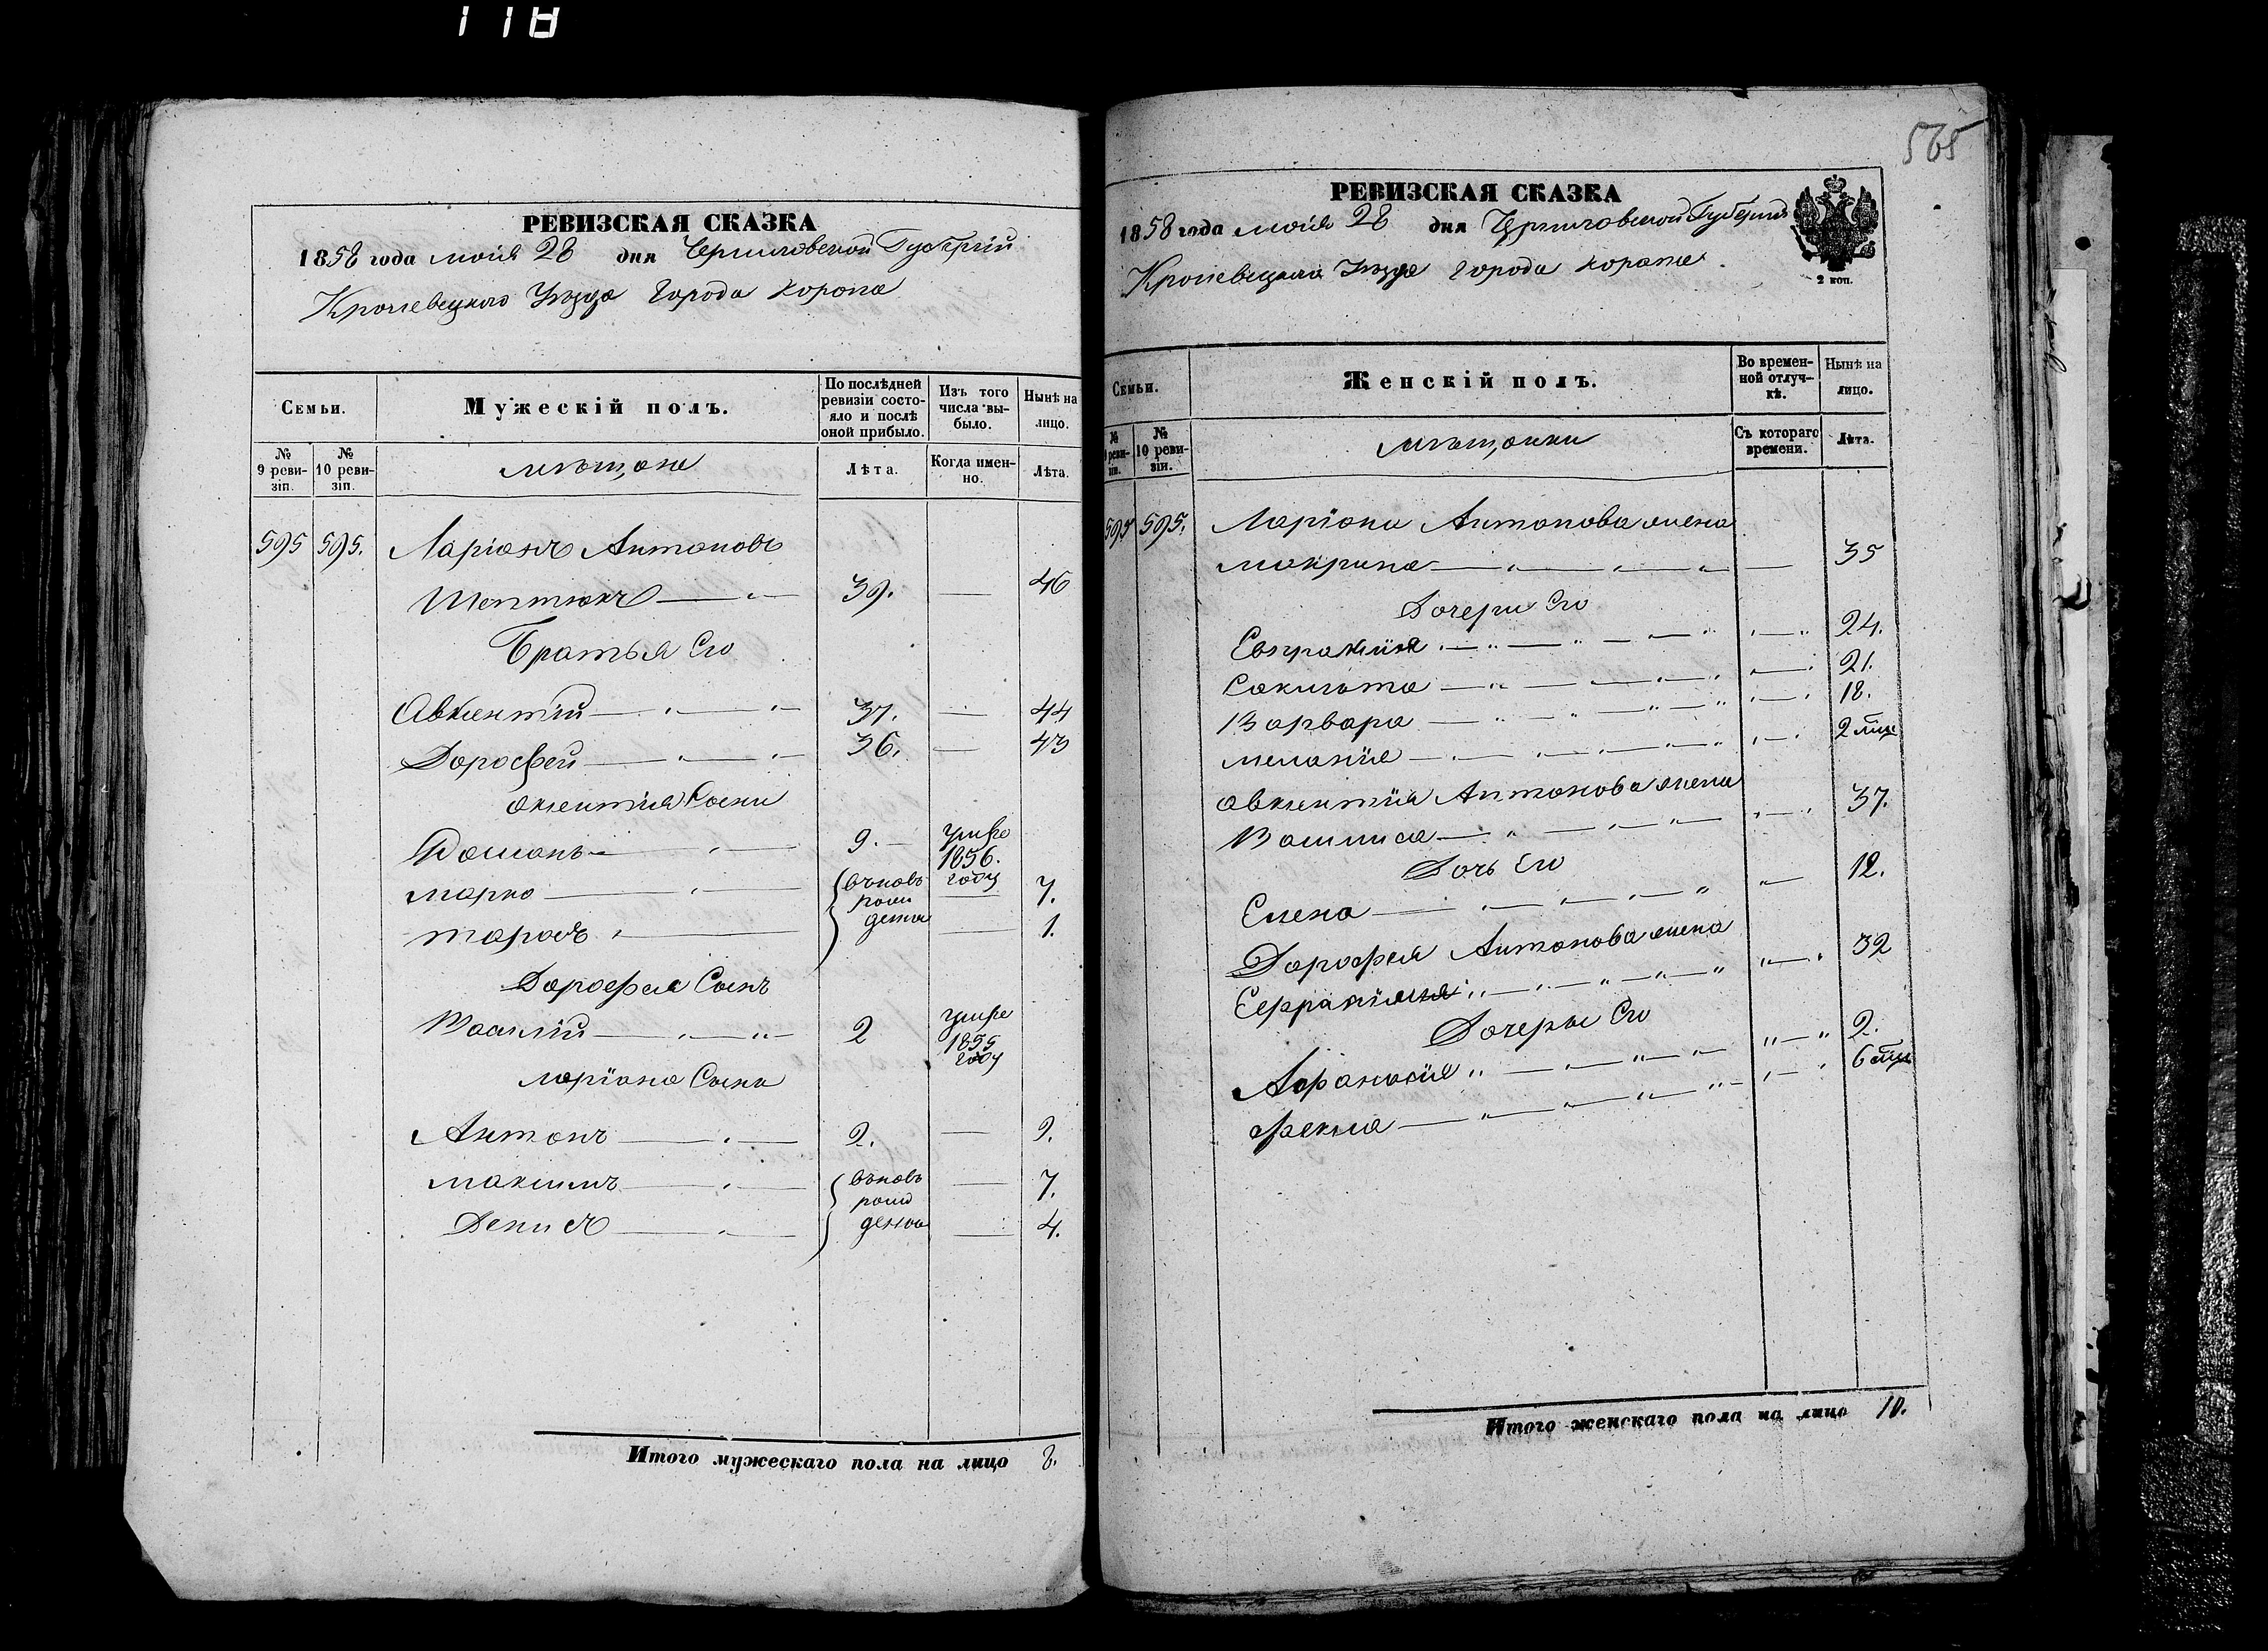 118
РЕВИЗСКАЯ СКАЗКА
1858 года маія 28 дня Черниговской Губерніи
Кролевецкаго Уѣзда Города Коропа
Семьи.
Мужескій полъ.
По послѣдней ревизіи состояло и послѣ оной прибыло.
Изъ того числа выбыло.
Нынѣ на лицо.
№ 9 ревизіи.
№ 10 ревизіи.
мѣщане
Лѣта.
Когда именно.
Лѣта.
595 595. Ларіонъ Антоновъ
Шептюкъ 39. 46
Братья Его
Авксентій 37. 44
Дорофей 36. 43
Сыни
9. умре 1856. году
Марко вновь рожденъ 7.
Тарасъ 1.
Дорофея Сынъ
Василій 2 умре 1855 году
Ларіона Сыны
Антонъ 2. 9.
Максимъ вновь рожденъ 7.
Денисъ 4.
Итого мужескаго пола на лицо 8.
565
РЕВИЗСКАЯ СКАЗКА
1858 года маія 28 дня Черниговской Губерніи
Кролевецкаго Уѣзда Города Коропа
2 коп.
Семьи.
Женскій полъ.
Во временной отлучкѣ.
Нынѣ на лицо.
№ 9 ревизіи.
№ 10 ревизіи.
мѣщанки
Съ котораго времени.
Лѣта.
595 595. Ларіона Антонова жена
Макрина 35
Дочери Его
24.
21.
Варвара 18.
Меланія 2
Авксентія Антонова жена
Василиса 37.
Дочь Его
Елена 12.
Дорофея Антонова жена
32
Дочеры Его
9.
Фекла 6
Итого женскаго пола на лицо 10.